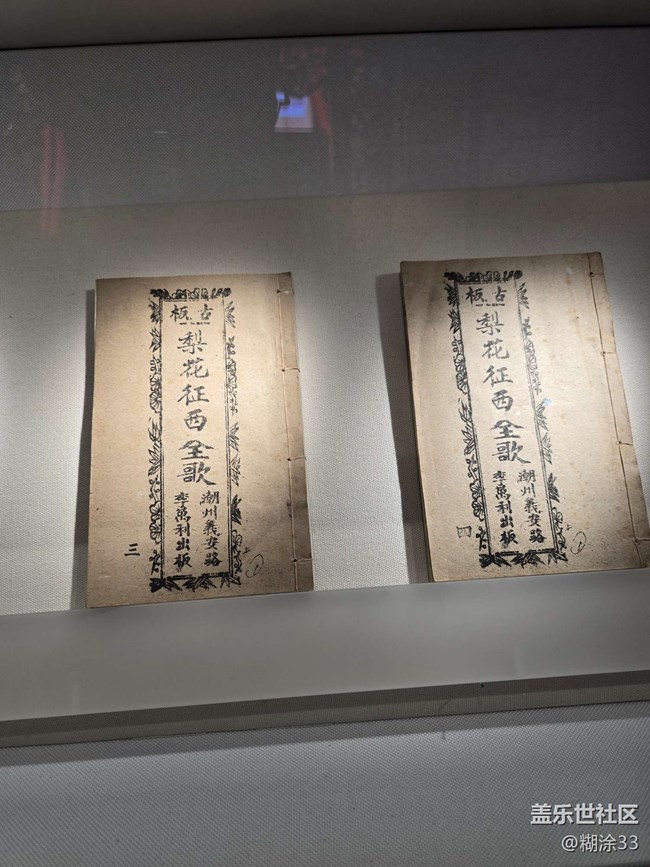 古板
梨花征西全歌
潮州義安路
李萬利出板
三
古板
梨花征西全歌
潮州義安路
李萬利出板
四
盖乐世社区
@糊涂33